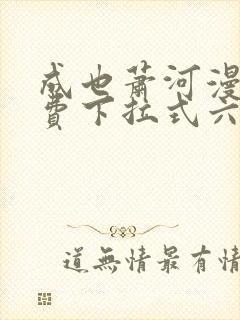 成也萧河漫
费下拉式六
道無情最有情